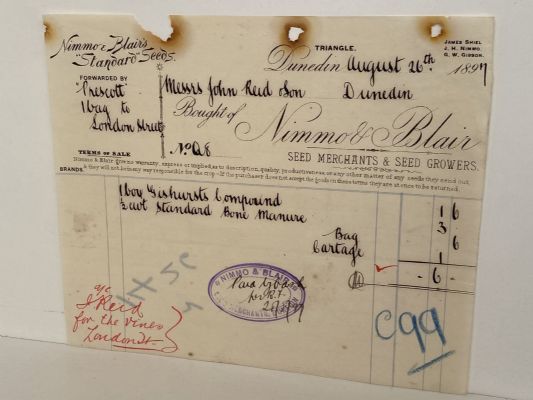 Nimmo & Blair's
"Standard" Seeds.
TRIANGLE.
JAMES SHIEL
J. H. NIMMO.
G. W. GIBSON.
Dunedin August 26th 1897
FORWARDED BY
Prescott
1 bag to
London Street
Messrs John Reid & Son Dunedin
Bought of Nimmo & Blair
No
SEED MERCHANTS & SEED GROWERS.
TERMS OF SALE
Nimmo & Blair give no warranty, express or implied, as to description, quality, productiveness, or any other matter of any seeds they send out,
& they will not be in any way responsible for the crop – If the purchaser does not accept the goods on these terms they are at once to be returned.
BRANDS.
1 box Gishursts Compound 1 6
½ cwt Standard Bone Manure 3
Bag 6
Cartage 1
- 6 -
NIMMO & BLAIR
SEED MERCHANTS, DUNEDIN
Paid
per
a/c
J Reid
for the vines
London St
C99